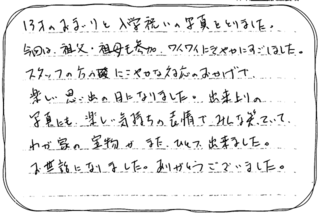 13才のおまいりと入学祝いの写真をとりました。
今回は、祖父・祖母も参加、ワイワイにぎやかにすごしました。
スタッフの方の にこやかな対応のおかげで
楽しい思い出の日になりました。出来上りの
写真にも、楽しい気持ちの表情で、みんな笑っていて、
わが家の宝物が また、ひとつ出来ました。
お世話になりました。ありがとうございました。